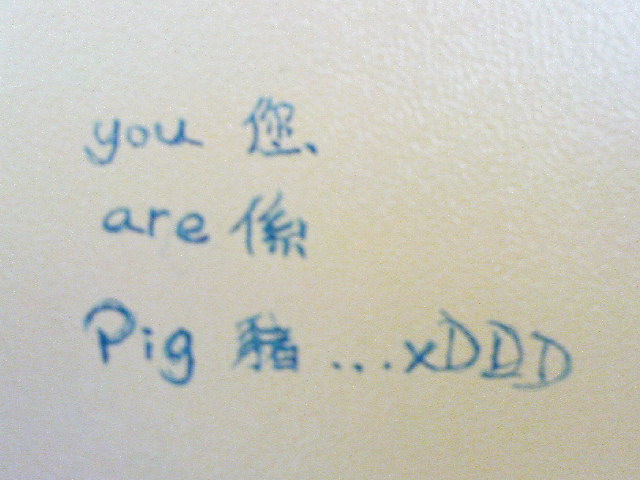 you 您
are 係
Pig 豬 ...xDDD